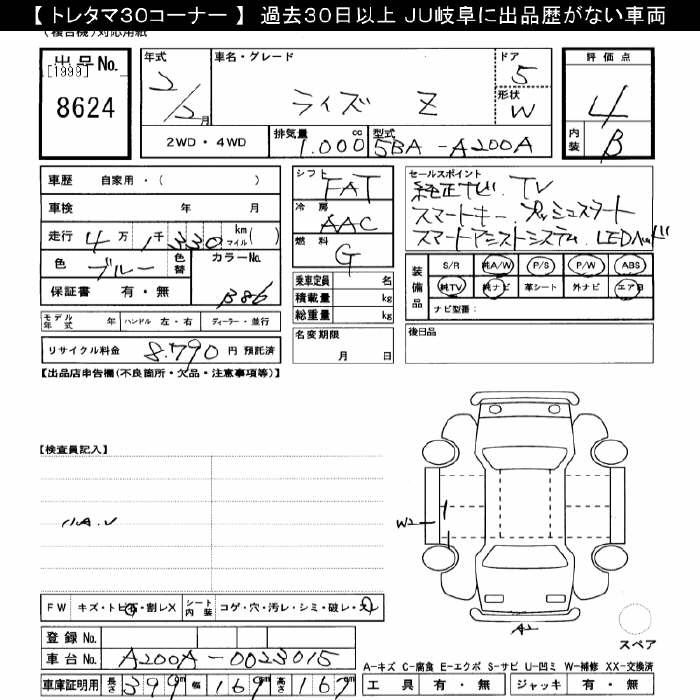 【 トレタマ30コーナー 】 過去30日以上 JU岐阜に出品歴がない車両
(複合機)対応用紙
出品No.
[1999]
8624
年式
2/2月
車名・グレード
ライズ Z
ドア
5
形状
W
評価点
4
内装
B
2WD・4WD
排気量
1.000cc
型式
5BA-A200A
車歴 自家用・( )
車検 年 月
走行 4万1千330 km マイル( )
色 ブルー 色替 カラーNo. B86
保証書 有・無
シフト
FAT
冷房
AAC
燃料
G
乗車定員 名
積載量 kg
総重量 kg
セールスポイント
純正ナビ、TV
スマートキー、プッシュスタート
スマートアシストシステム、LEDヘッド
装備品
S/R 純A/W P/S P/W ABS
純TV 純ナビ 革シート 外ナビ エアB
ナビ型番:
モデル年式 年 ハンドル 左・右 ディーラー・並行
名変期限
月 日
後日品
リサイクル料金 8.790 円 預託済
【出品店申告欄(不良箇所・欠品・注意事項等)】
【検査員記入】
W2
A2
FW キズ・トビ石・割レX
シート内装 コゲ・穴・汚レ・シミ・破レ・スレ
登録No.
車台No. A200A-0023015
車庫証明用 長さ 399cm 幅 169cm 高さ 167cm
スペア
A-キズ C-腐食 E-エクボ S-サビ U-凹ミ W-補修 XX-交換済
工具 有・無 ジャッキ 有・無